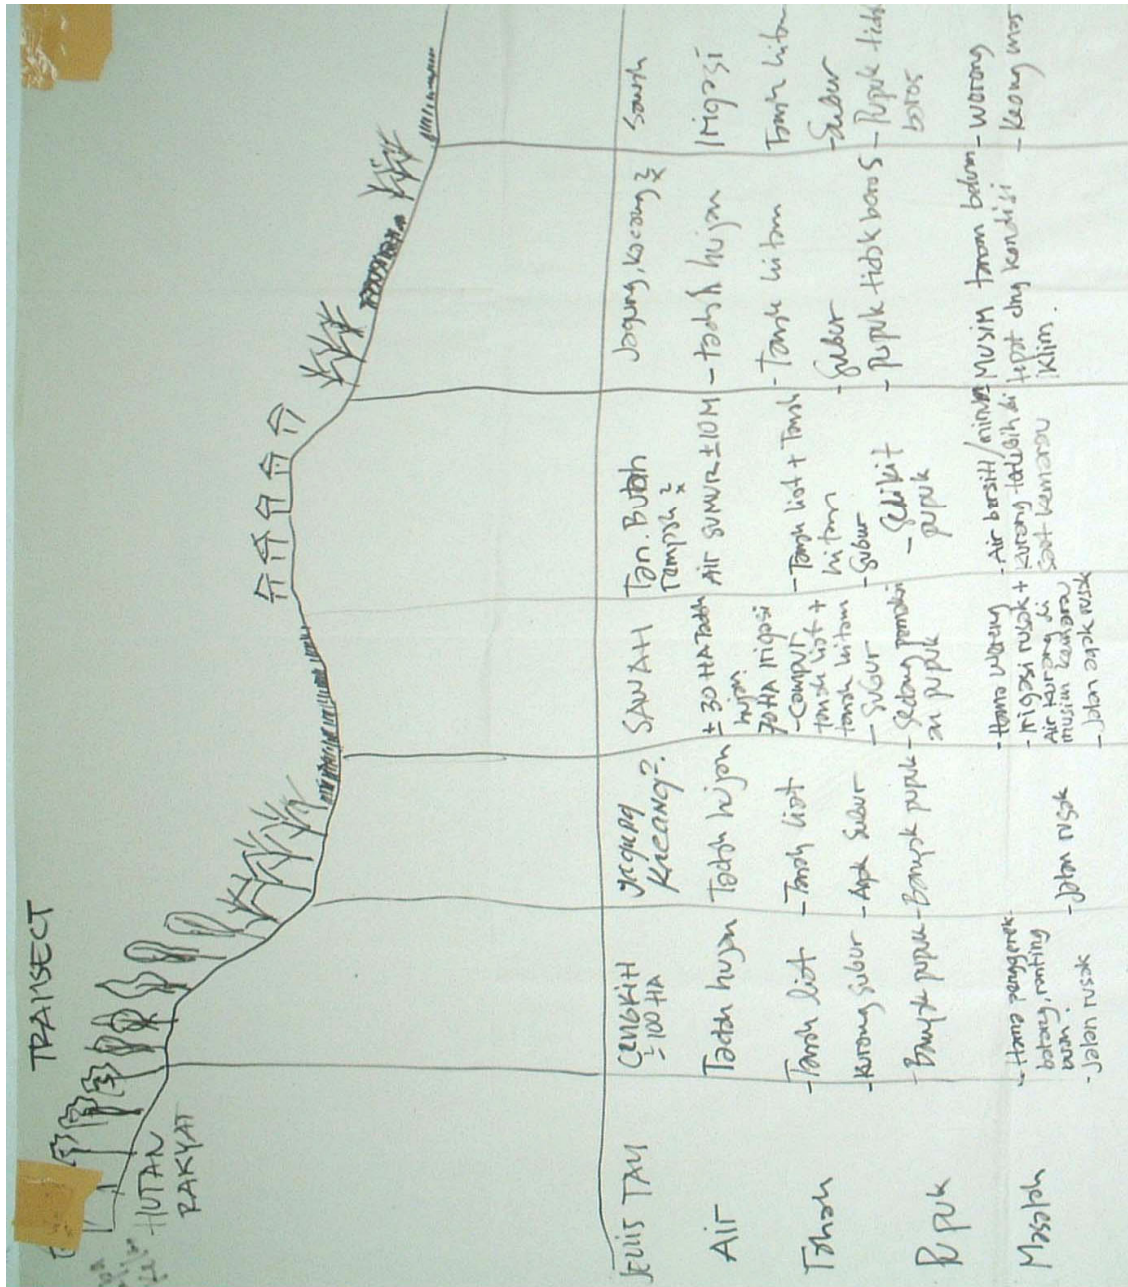 TRANSECT
HUTAN
RAKYAT
JENIS TAN
CENGKIH
± 100 HA
SAWAH
Tan. Buah
Jagung, Kacang²
Sawah
Air
Tadah hujan
Tadah hujan
± 30 HA Tadah
hujan
70 HA Irigasi
Air SUMUR ± 10 M
- tadah hujan
Irigasi
Tanah
- Tanah liat
- Kurang subur
- Tanah liat
- Agak subur
- Campur
tanah liat +
tanah hitam
- Subur
- Tanah liat + Tanah
hitam
- Subur
- Tanah hitam
- Subur
Tanah hitam
- Subur
Pupuk
- Banyak pupuk
- Banyak pupuk
- Sedang pemakai
an pupuk
- Sedikit
pupuk
- Pupuk tidak boros
- Pupuk tidak
boros
Masalah
- Hama penggerek
batang, ranting
- Jalan rusak
- Jalan rusak
- Hama Wereng
- Irigasi rusak +
Air kurang di
musim kemarau
- Jalan agak rusak
- Air bersih/minum
kurang terlebih di
saat kemarau
- Musim tanam belum
tepat dng kondisi
iklim.
- Wereng
- Keong mas